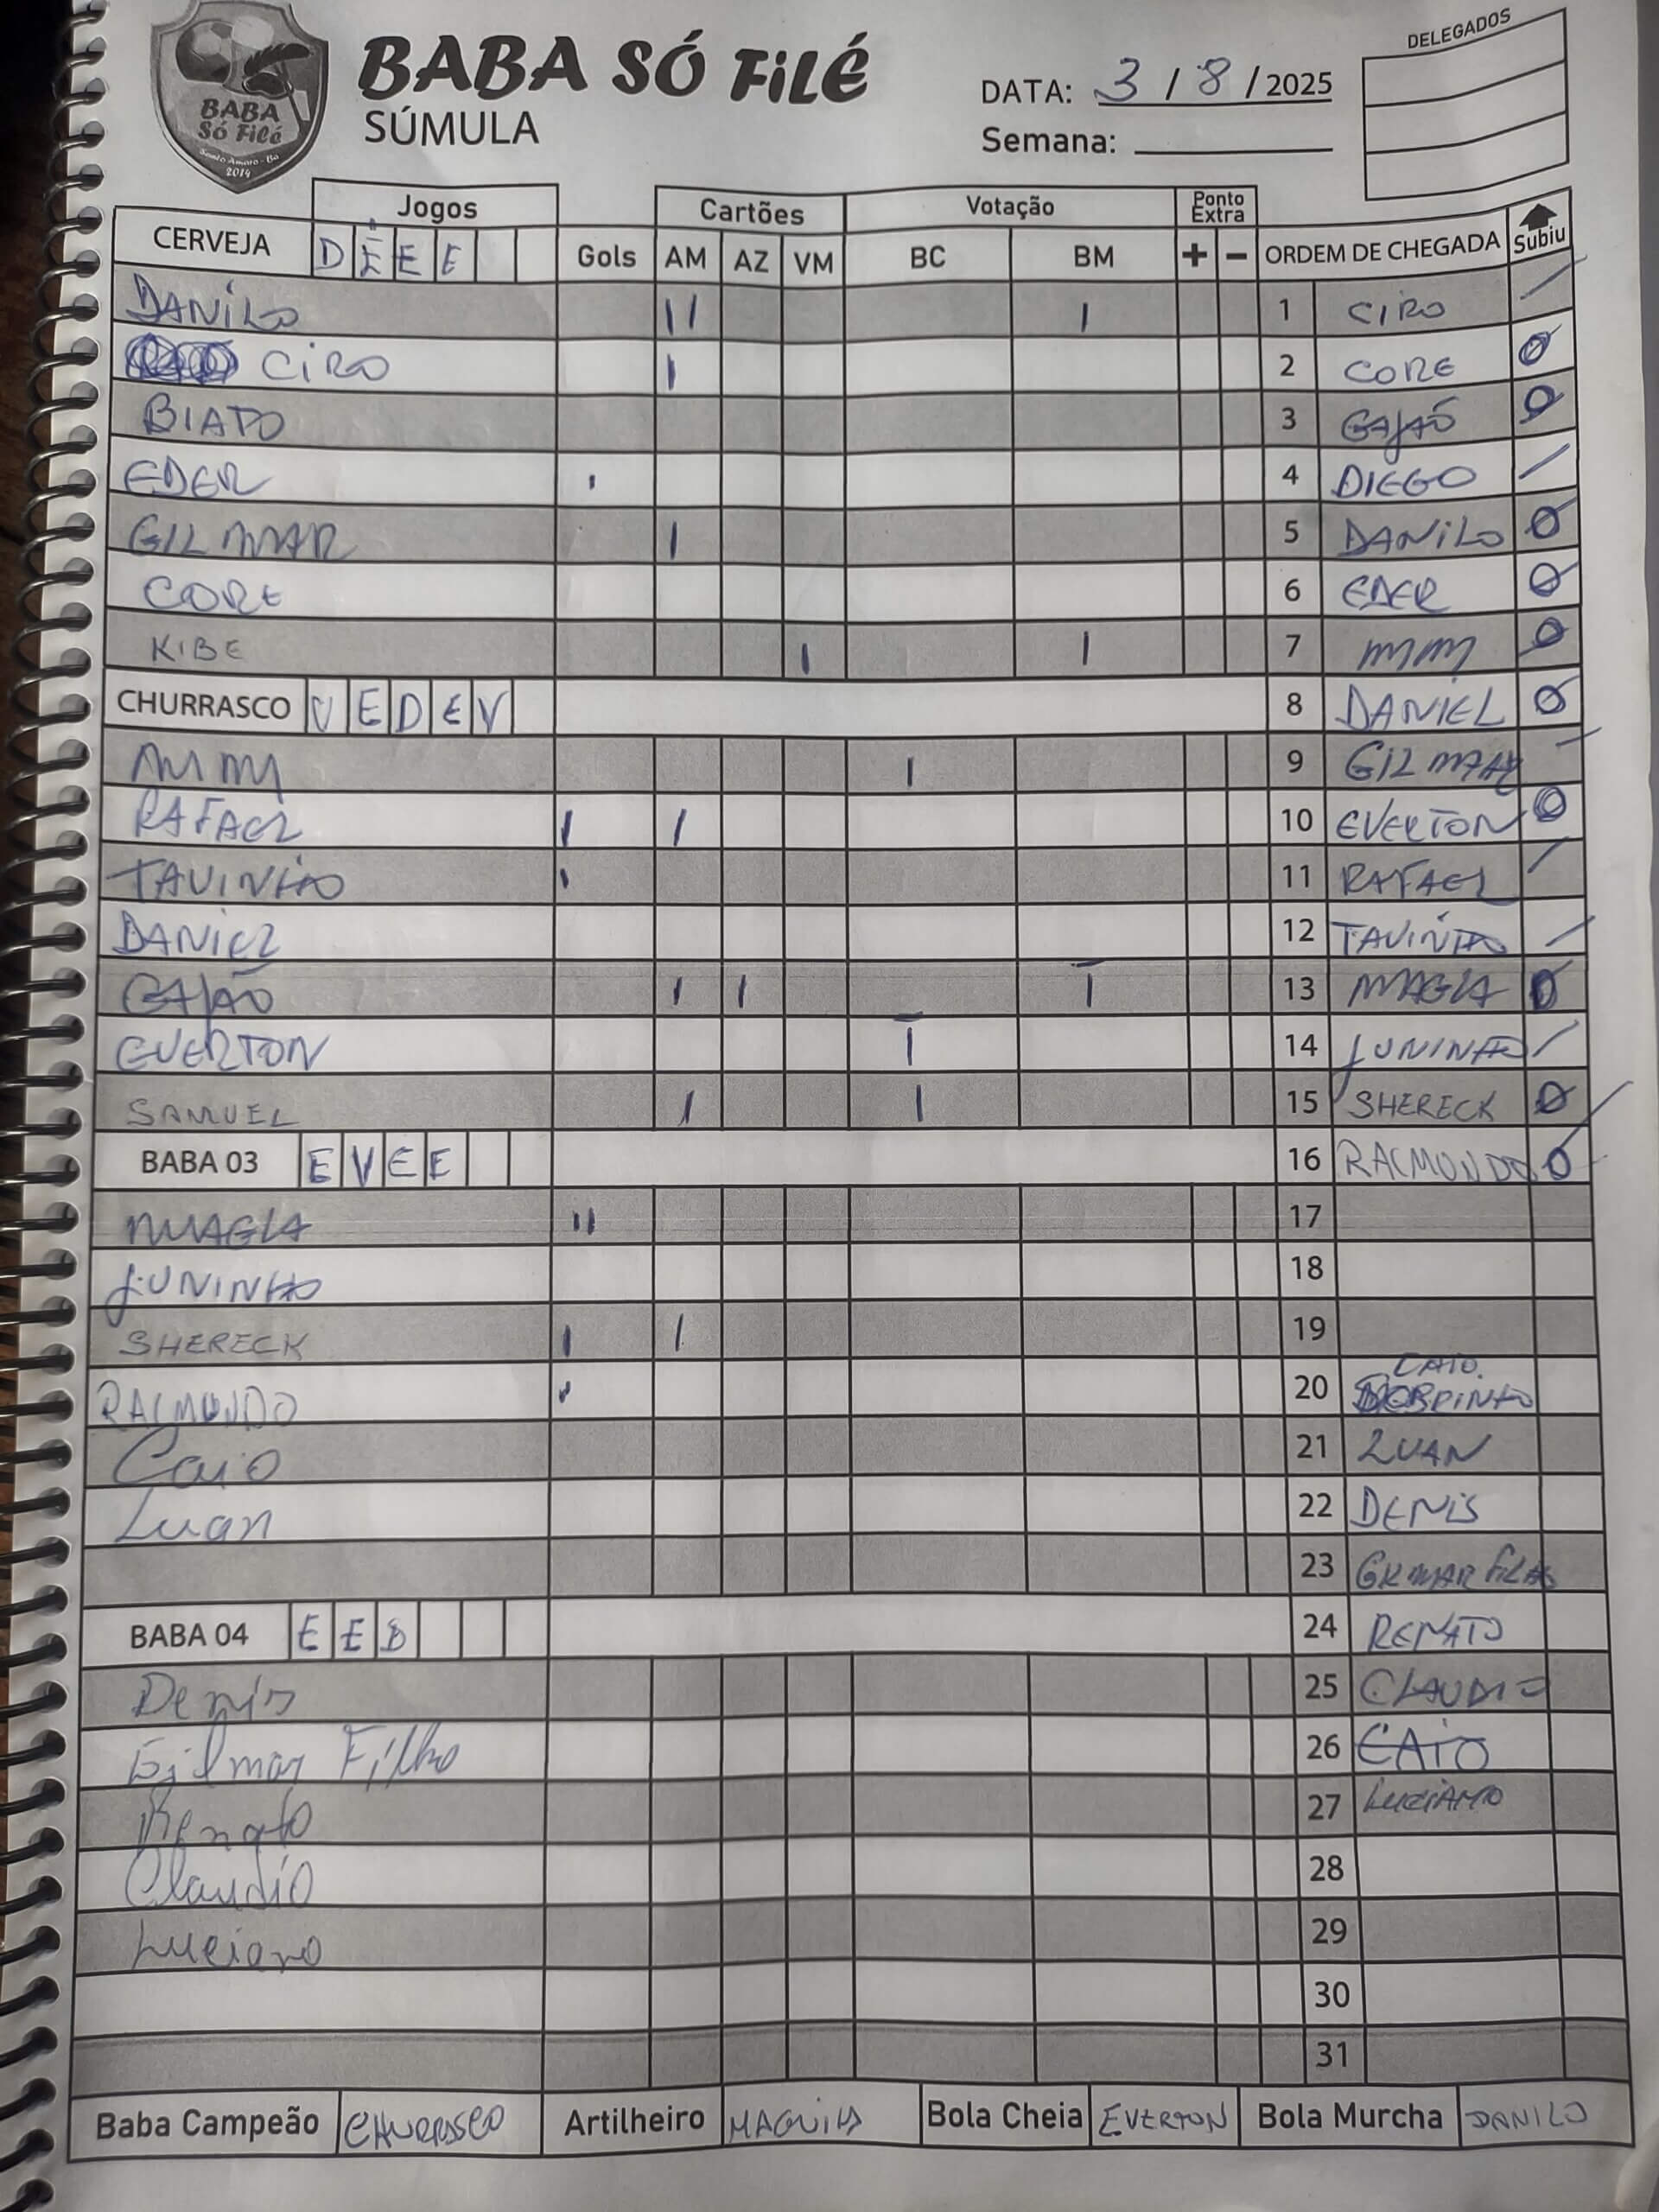 BABA
Só Filé
Santo Amaro - Ba
2014
BABA SÓ FiLÉ
SÚMULA
DATA: 3 / 8 / 2025
Semana:
DELEGADOS
Jogos Cartões Votação Ponto Extra
CERVEJA D E E E Gols AM AZ VM BC BM + - ORDEM DE CHEGADA Subiu
DANiLO II I 1 CIRO /
CiRO I 2 CORE Ø
BIATO 3 GAJAÕ Ø
EDER I 4 DIEGO /
GILMAR I 5 DANiLO Ø
CORE 6 EDER Ø
KIBE I I 7 MM Ø
CHURRASCO V E D E V 8 DANIEL Ø
MM I 9 GILMAR /
RAFAEL I I 10 EVERTON Ø
TAVINHO I 11 RAFAEL /
DANIEL 12 TAVINHO /
GAJÃO I I I 13 MAGLA Ø
EVERTON I 14 JUNINHO /
SAMUEL I I 15 SHERECK Ø
BABA 03 E V E E 16 RAIMUNDO Ø
MAGLA II 17
JUNINHO 18
SHERECK I I 19
RAIMUNDO I 20 CAIO.
Caio 21 LUAN
Luan 22 DENIS
23 GILMAR FILHO
BABA 04 E E D 24 RENATO
Denis 25 CLAUDIO
Gilmar Filho 26 CAIO
Renato 27 LUCIANO
Claudio 28
Luciano 29
30
31
Baba Campeão CHURRASCO Artilheiro MAGUILA Bola Cheia EVERTON Bola Murcha DANILO